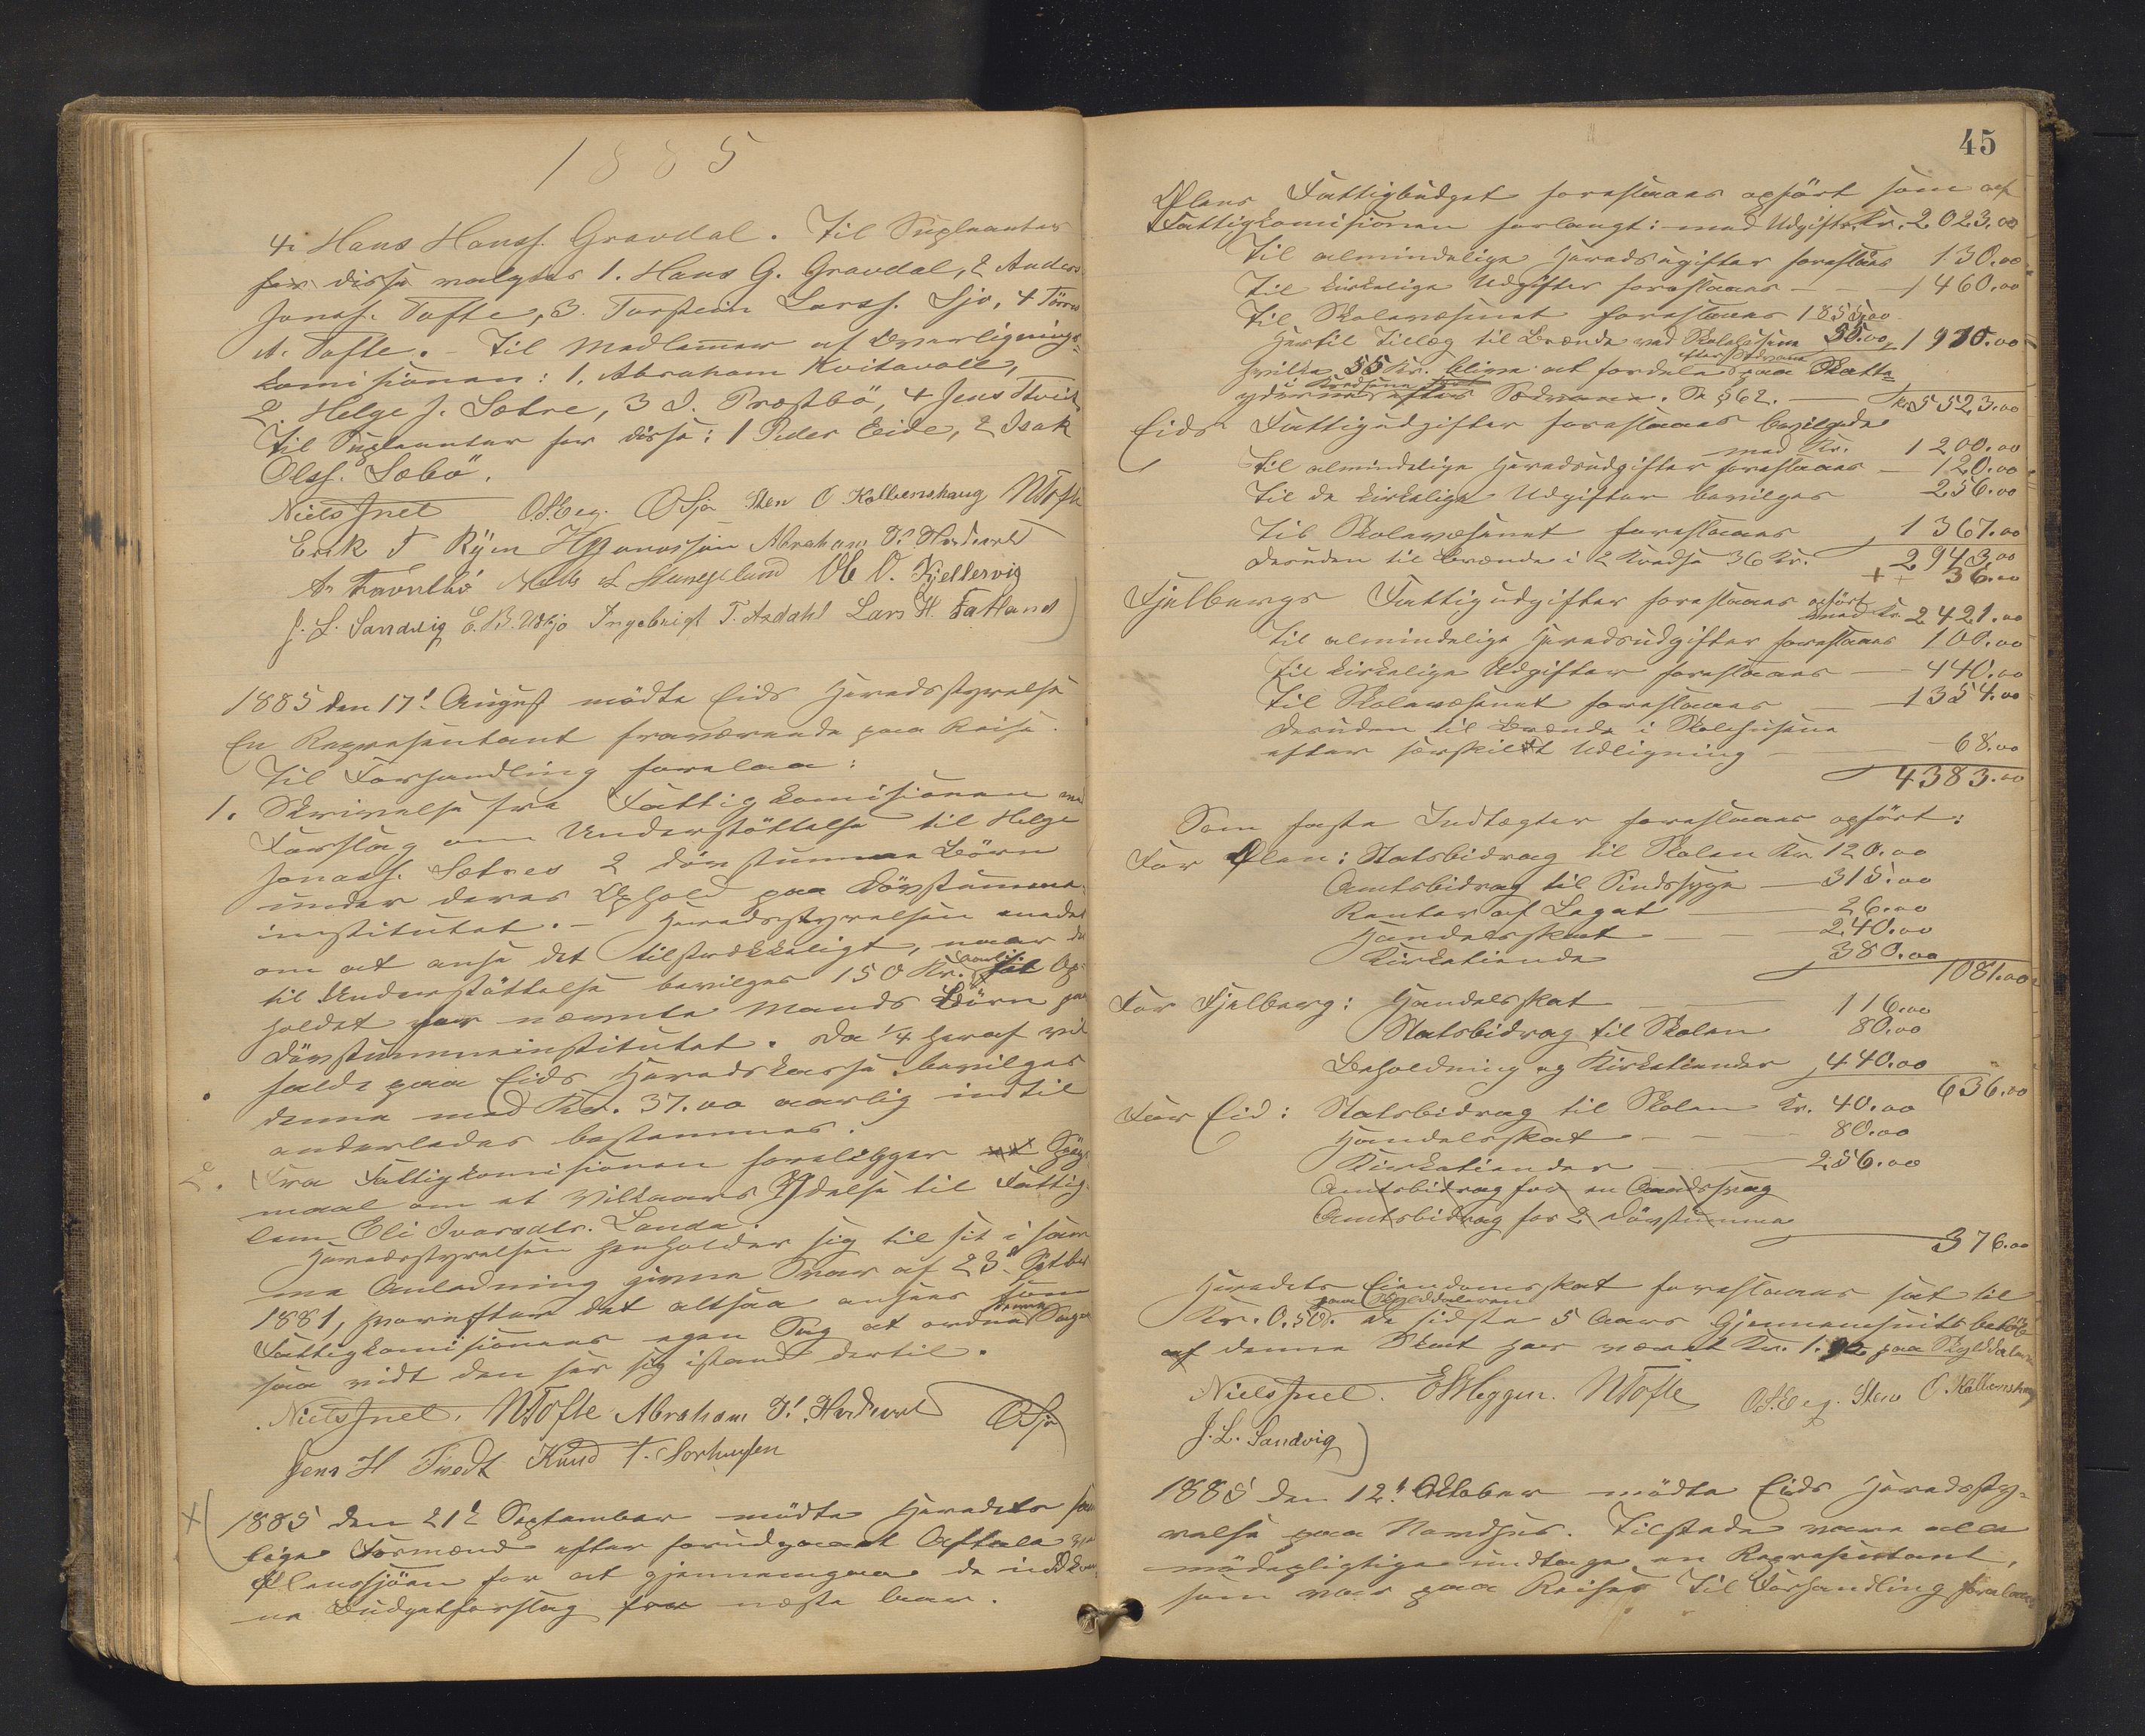 1885
4. Hans Hanss. Gravdal. Til Supleanter
for disse valgtes 1. Hans G. Gravdal, 2 Anders
Jonass. Tofte, 3. Torstein Larss. Sjo, 4 Törres
A. Tofte. – Til Medlemmer af Overlignings-
komisionen: 1. Abraham Kvitavoll,
2. Helge J. Sætre, 3 I. Præstbö, 4 Jens Tveit
Til Supleanter for disse: 1 Peder Eide, 2 Isak
Olss. Sæbö.
Niels Juel O. Sjo Sten O Kallevshaug NTofte
Erik T Rÿen Abraham
Ole O. Kjellesvig
J. L. Sandvig Ingebrigt T. Axdahl Lars H. Fatland
1885 den 17d August mödte Eids Heredsstyrelse
En Repræsentant fraværende paa Reise.
Til Forhandling forelaa:
1. Skrivelse fra Fattigkomisionen med
Forslag om Understöttelse til Helge
Jonass. Sætres 2 dövstumme Börn
under deres Ophold paa Dövstumme-
institutet. – Heredsstyrelsen enedes
om at anse det tilstrækkeligt, naar der
til Understöttelse bevilges 150 Kr. aarlig til Op-
holdet for nævnte Mands Börn paa
Dövstummeinstitutet. Da 1/4 heraf vil
falde paa Eids Heredskasse bevilges
denne med Kr. 37.00 aarlig indtil
anderledes bestemmes.
2. Fra Fattigkomisionen foreligger Spörgs-
maal om et Vilkaars Ydelse til Fattig-
lem Eli Ivarsdtr. Landa.
Heredsstyrelsen henholder sig til sit i sam-
me Anledning givne Svar af 23d Sptber
1881, hvorefter det altsaa ansees som
Fattigkomisionens egen Sag at ordne denne Sag
saa vidt den ser sig istand dertil.
Niels Juel. NTofte Abraham O Sjo
Jens H Tvedt Knud T.
1885 den 21d September mödte Heredets
lige Formænd efter forudgaaet Aftale paa
Ølenssjöen for at gjennemgaa de indkom-
ne Budgetforslag for næste Aar.
45
Ølens Fattigbudget foreslaaes opfört som af
Fattigkomisionen forlangt: med Udgifts. Kr. 2023.00
Til almindelige Heredsugifter foreslaaes 130.00
Til kirkelige Udgifter foreslaaes – – 1460.00
Til Skolevæsenet foreslaaes 1855.00
Hertil Tillæg til Brænde ved Skolehusene 55.00, 1910.00
hvilke 55 Kr. blive at fordele efter Sædvane paa Skatte-
yderne i Kredsene efter Sædvane. Sk § 62. – Kr. 5523.00
Eids Fattigudgifter foreslaaes bevilgede
med Kr. 1200.00
Til almindelige Heredsudgifter foreslaaes – 120.00
Til de kirkelige Udgifter bevilges 256.00
Til Skolevæsenet foreslaaes 1367.00
2943.00
Desuden til Brænde i 2 Kredse 36 Kr. + 36.00
Fjelbergs Fattigudgifter foreslaaes opfört med Kr. 2421.00
Til almindelige Heredsudgifter foreslaaes 100.00
Til kirkelige Udgifter foreslaaes – 440.00
Til Skolevæsenet foreslaaes – 1354.00
Desuden til Brænde i Skolehusene
efter særskildt Udligning – 68.00
4383.00
Som faste Indtægter foreslaaes opfört:
For Ølen: Statsbidrag til Skolen Kr. 120.00
Amtsbidrag til Sindssyge – 315.00
Renter af Legat – 26.00
Handelsskat – 240.00
Kirketiende 380.00
1081.00
For Fjelberg: Handelsskat – 116.00
Statsbidrag til Skolen 80.00
Beholdning og Kirketiender 440.00
636.00
For Eid: Statsbidrag til Skolen Kr. 40.00
Handelsskat – – – 80.00
Kirketiender – – 256.00
Amtsbidrag for en Aandssvag
Amtsbidrag for 2 Dövstumme
376.00
Heredets Eiendomsskat foreslaaes sat til
Kr. 0.50. paa Skylddaleren De sidste 5 Aars Gjennemsnitsbelöb
af denne Skat har været Kr. 1. paa Skylddaleren
Niels Juel. NTofte Sten O Kallevshaug
J. L. Sandvig
1885 den 12te Oktober mödte Eids Heredssty-
relse paa Nordhus. Tilstede vare alle
mödepligtige undtage en Repræsentant,
som var paa Reiser. Til Forhandling forelaa: